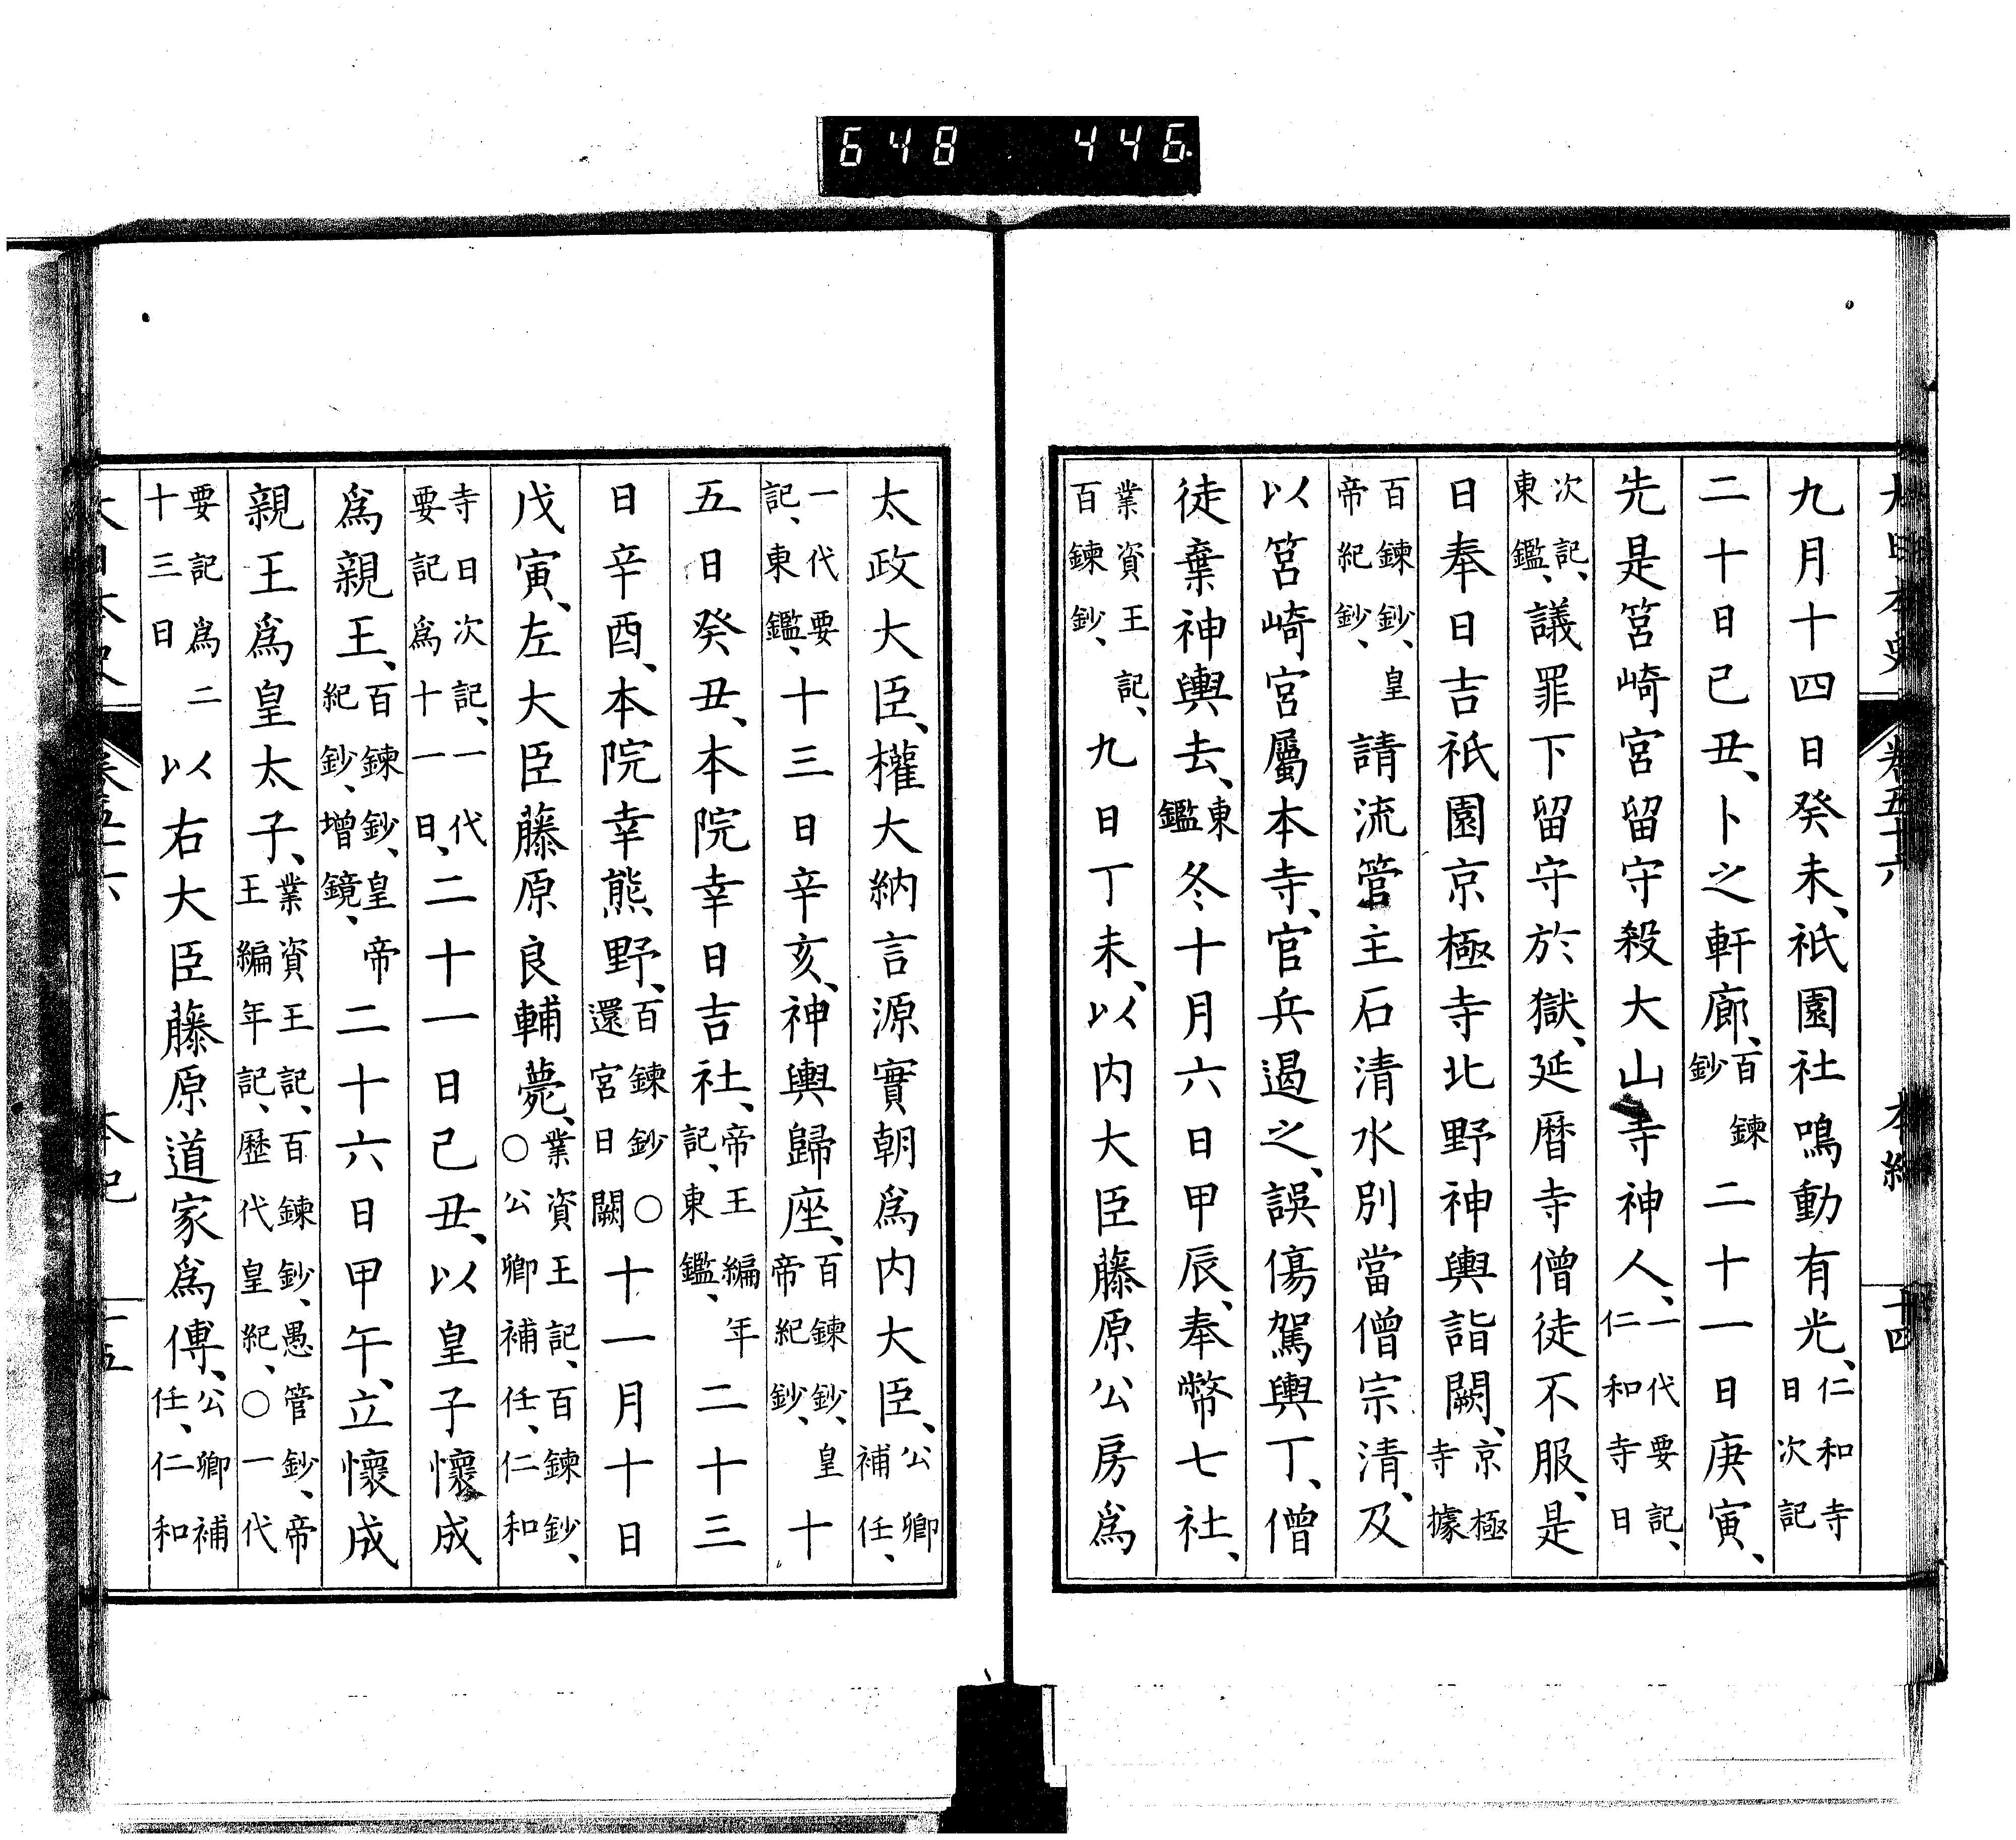 648 446
大日本史 卷五十六 本紀 十四
九月十四日癸未、祇園社鳴動有光、仁和寺日次記
二十日己丑、卜之軒廊、百鍊鈔二十一日庚寅、
先是筥崎宮留守殺大山寺神人、一代要記、仁和寺日
次記、東鑑、議罪下留守於獄、延暦寺僧徒不服、是
日奉日吉祇園京極寺北野神輿詣闕、京極寺據
百鍊鈔、皇帝紀鈔、請流管主石清水別當僧宗清、及
以筥崎宮屬本寺、官兵遏之、誤傷駕輿丁、僧
徒棄神輿去、東鑑冬十月六日甲辰、奉幣七社、
業資王記、百鍊鈔、九日丁未、以内大臣藤原公房爲
太政大臣、權大納言源實朝爲内大臣、公卿補任、
一代要記、東鑑、十三日辛亥、神輿歸座、百鍊鈔、皇帝紀鈔、十
五日癸丑、本院幸日吉社、帝王編年記、東鑑、二十三
日辛酉、本院幸熊野、百鍊鈔○還宮日闕十一月十日
戊寅、左大臣藤原良輔薨、業資王記、百鍊鈔、○公卿補任、仁和
寺日次記、一代要記爲十一日、二十一日己丑、以皇子懷成
爲親王、百鍊鈔、皇帝紀鈔、增鏡、二十六日甲午、立懷成
親王爲皇太子、業資王記、百鍊鈔、愚管鈔、帝王編年記、歷代皇紀、○一代
要記爲二十三日以右大臣藤原道家爲傅、公卿補任、仁和
大日本史 卷五十六 本紀 十五